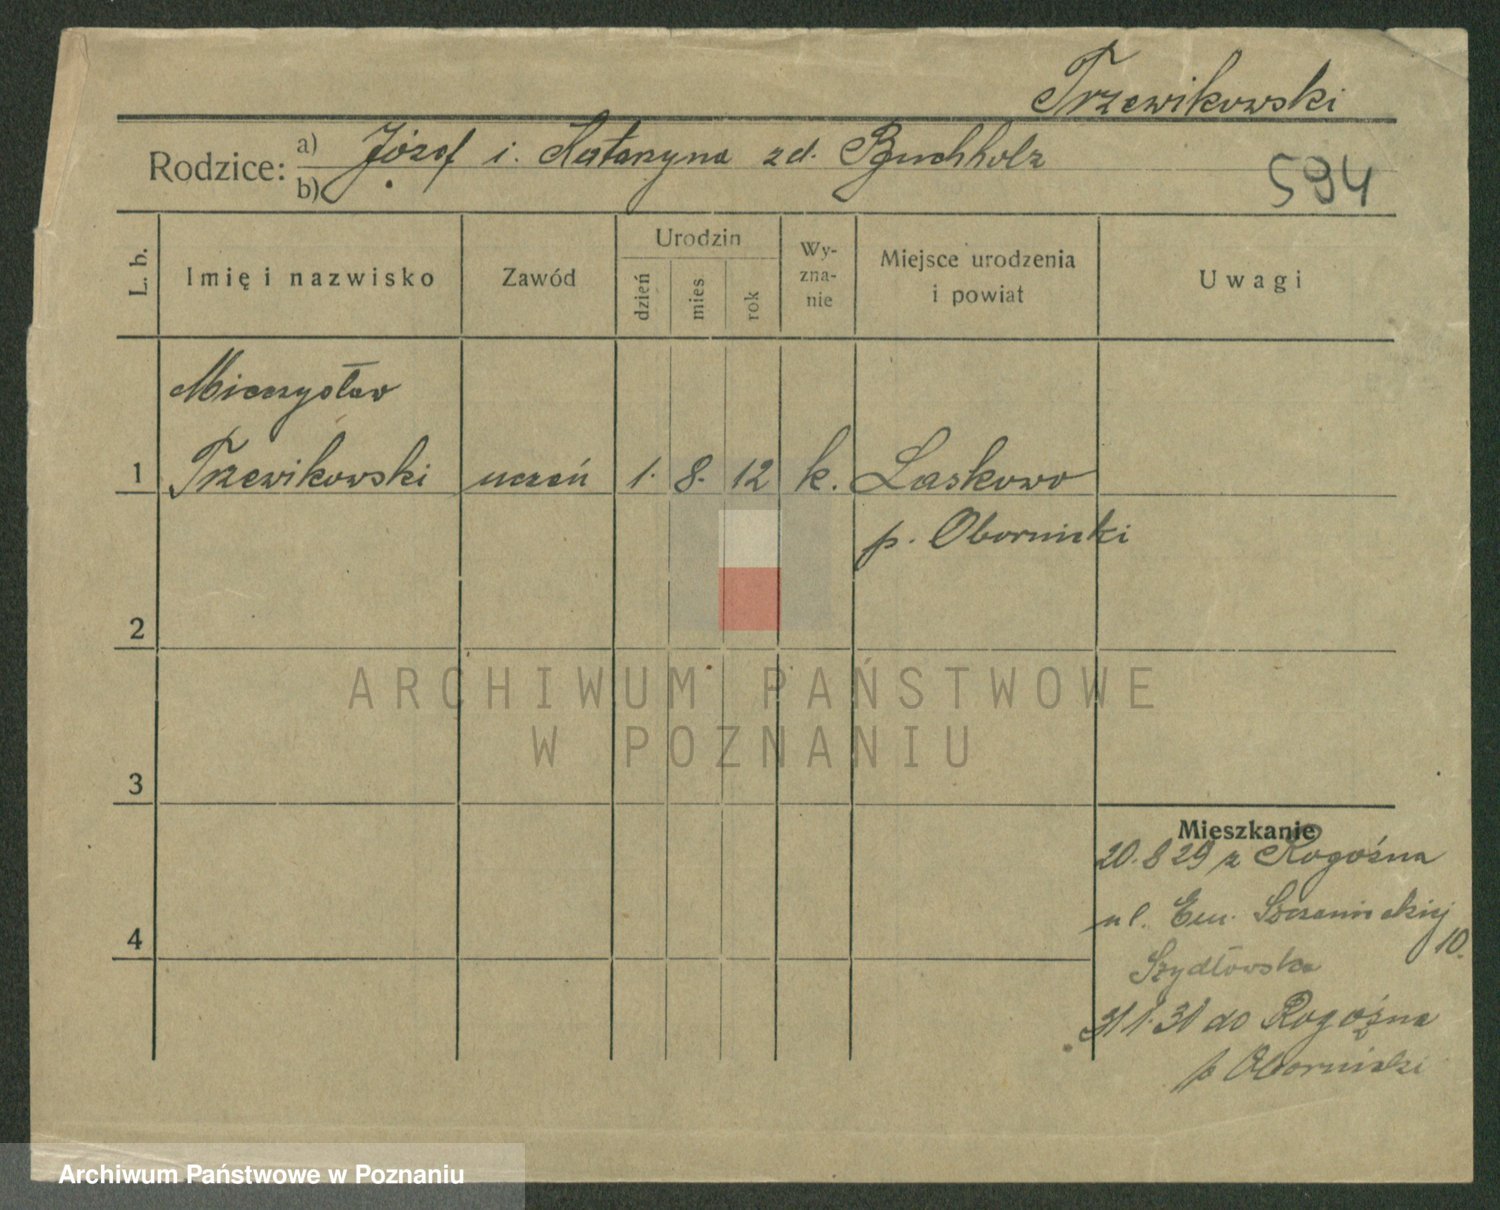 Trzewikowski
Rodzice: a) Józef i. Katarzyna zd. Buchholz
b)
594
L. b.
Imię i nazwisko
Zawód
Urodzin
dzień
mies
rok
Wy-
zna-
nie
Miejsce urodzenia
i powiat
Uwagi
Mieczysław
1 Trzewikowski uczeń 1. 8. 12 k. Laskowo
p. Obornicki
2
3
4
Mieszkanie
20.8 29 z Rogoźna
ul. Em. Szczanieckiej
10.
Szydłowska
31 1. 31 do Rogoźna
p Obornicki
ARCHIWUM PAŃSTWOWE
W POZNANIU
Archiwum Państwowe w Poznaniu